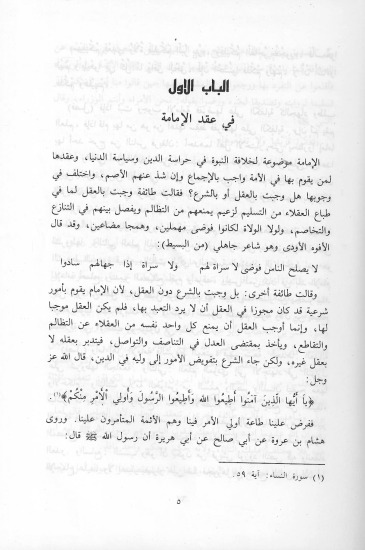 الباب الأول
في عقد الإمامة
الإمامة موضوعة لخلافة النبوة في حراسة الدين وسياسة الدنيا، وعقدها
لمن يقوم بها في الأمة واجب بالإجماع وإن شذ عنهم الأصم، واختلف في
وجوبها هل وجبت بالعقل أو بالشرع؟ فقالت طائفة وجبت بالعقل لما في
طباع العقلاء من التسليم لزعيم يمنعهم من التظالم ويفصل بينهم في التنازع
والتخاصم، ولولا الولاة لكانوا فوضى مهملين، وهمجا مضاعين، وقد قال
الأفوه الأودى وهو شاعر جاهلي (من البسيط):
لا يصلح الناس فوضى لا سراة لهم ولا سراة إذا جهالهم سادوا
وقالت طائفة أخرى: بل وجبت بالشرع دون العقل، لأن الإمام يقوم بأمور
شرعية قد كان مجوزا في العقل أن لا يرد التعبد بها، فلم يكن العقل موجبا
لها، وإنما أوجب العقل أن يمنع كل واحد نفسه من العقلاء عن التظالم
والتقاطع، ويأخذ بمقتضى العدل في التناصف والتواصل، فيتدبر بعقله لا
بعقل غيره، ولكن جاء الشرع بتفويض الأمور إلى وليه في الدين، قال الله عز
وجل:
﴿يَا أَيُّهَا الَّذِينَ آمَنُوا أَطِيعُوا اللَّهَ وَأَطِيعُوا الرَّسُولَ وَأُولِي الْأَمْرِ مِنْكُمْ﴾(١).
ففرض علينا طاعة أولي الأمر فينا وهم الأئمة المتأمرون علينا. وروى
هشام بن عروة عن أبي صالح عن أبي هريرة أن رسول الله ﷺ قال:
(١) سورة النساء: آية ٥٩.
٥